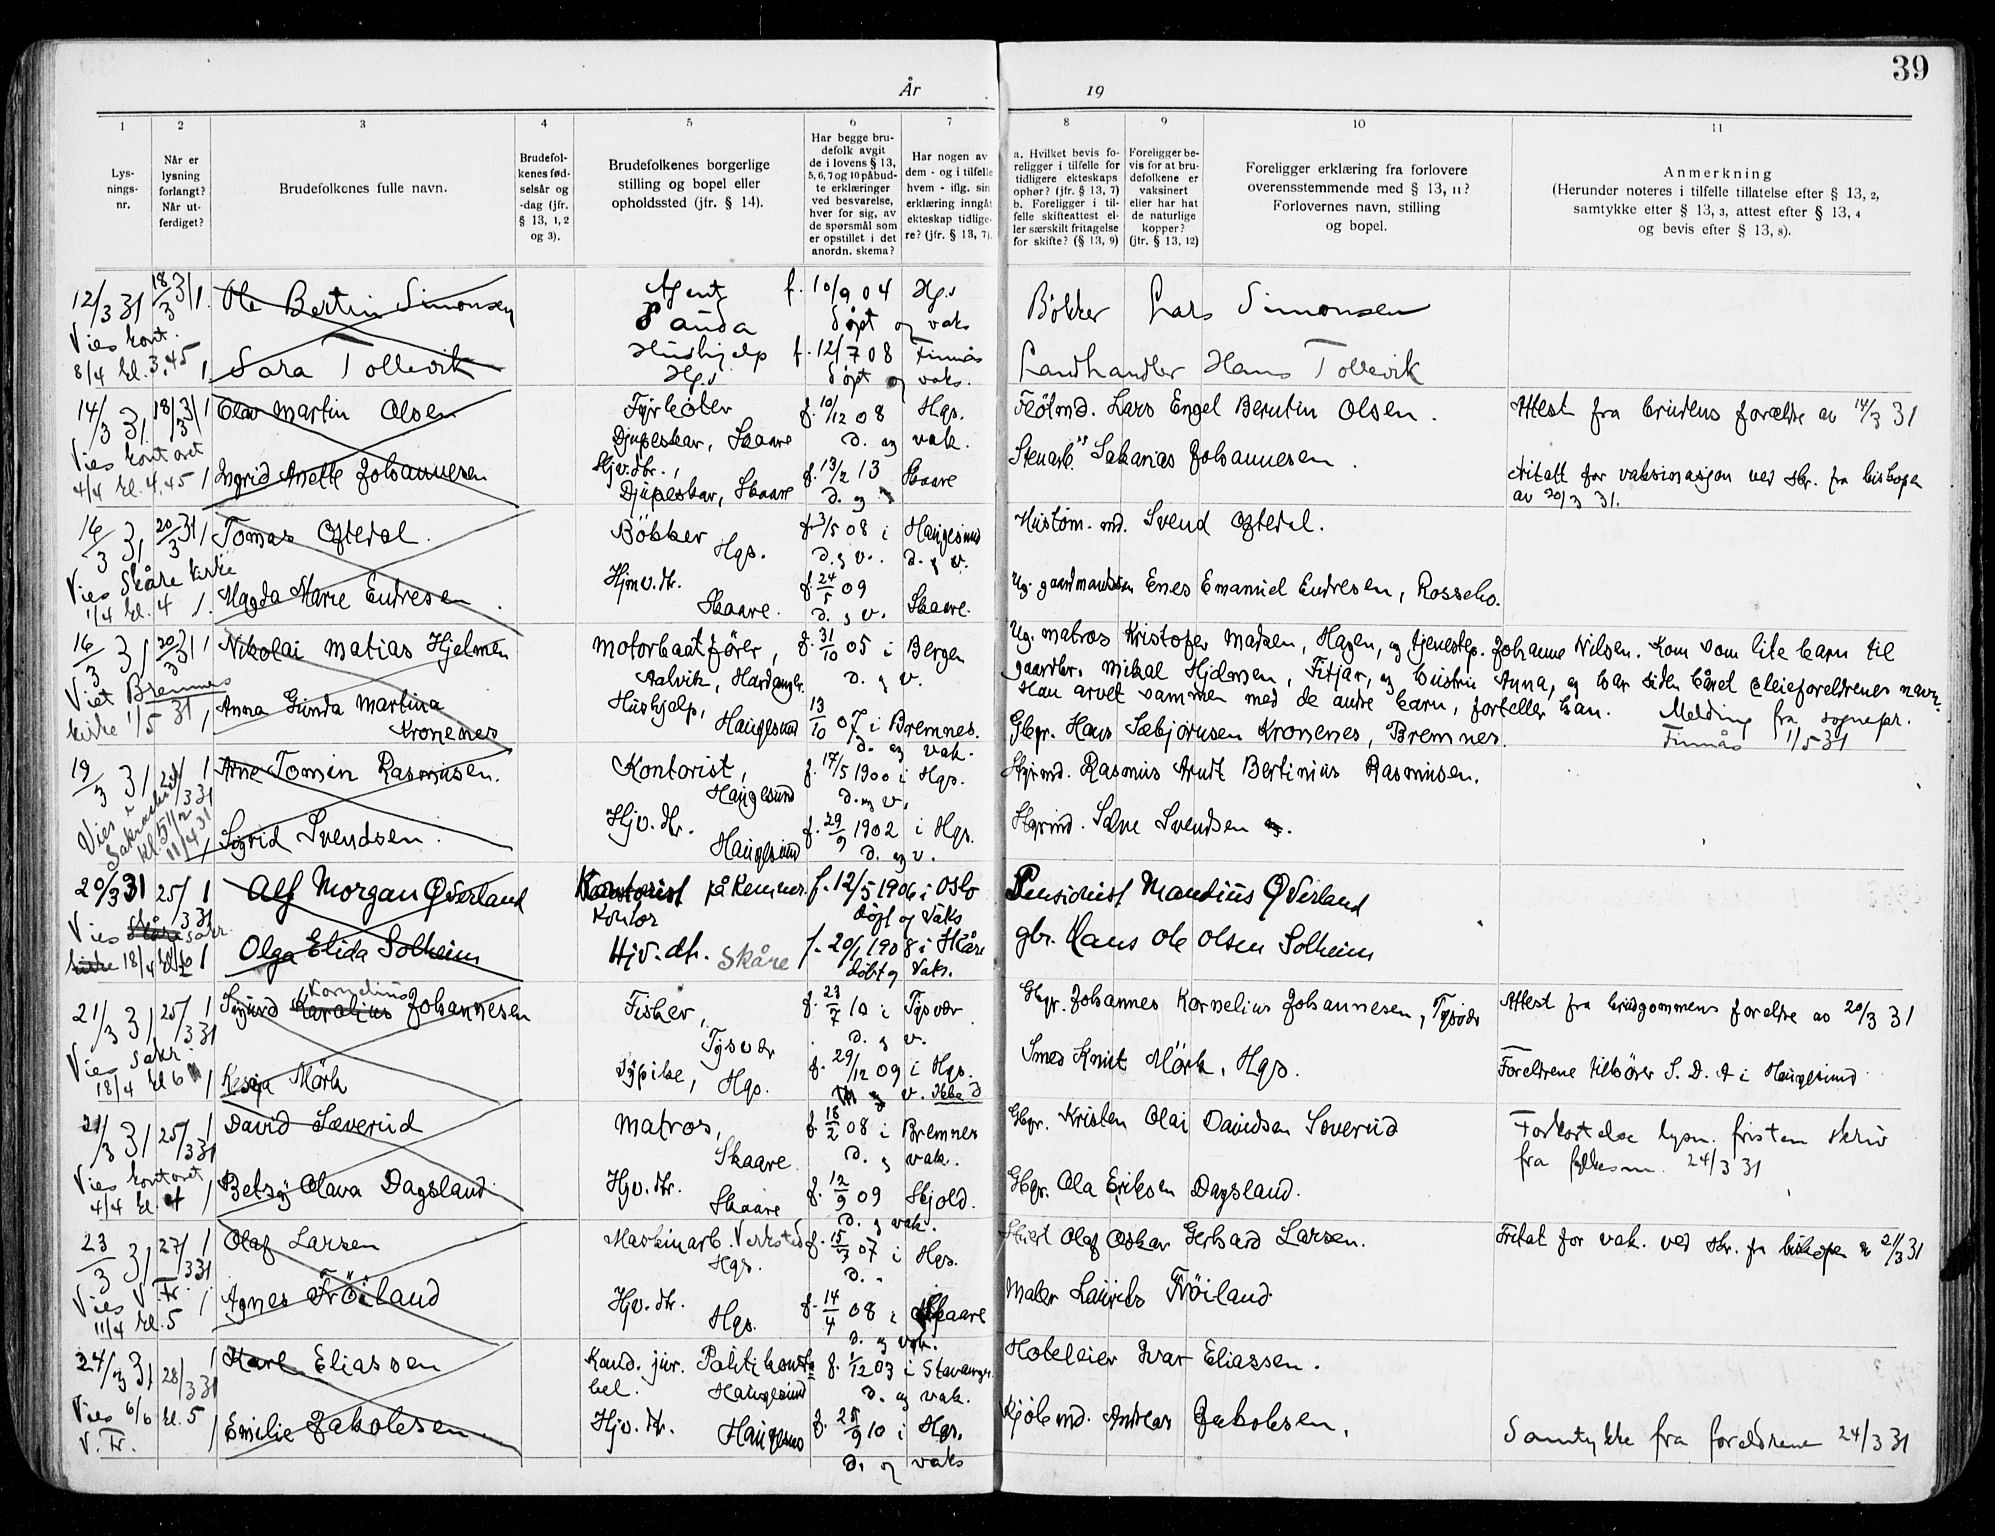 39
År 19
1 2 3 4 5 6 7 8 9 10 11
Lys-
nings-
nr.
Når er
lysning
forlangt?
Når ut-
ferdiget?
Brudefolkenes fulle navn.
Brudefol-
kenes fød-
selsår og
-dag (jfr.
§ 13, 1, 2
og 3).
Brudefolkenes borgerlige
stilling og bopel eller
opholdssted (jfr. § 14).
Har begge bru-
defolk avgit
de i lovens § 13,
5, 6, 7 og 10 påbud-
te erklæringer
ved besvarelse,
hver for sig, av
de spørsmål som
er opstillet i det
anordn. skema?
Har nogen av
dem - og i tilfelle
hvem - iflg. sin
erklæring inngåt
ekteskap tidlige-
re? (jfr. § 13, 7).
a. Hvilket bevis fo-
religger i tilfelle for
tidligere ekteskaps
ophør? (jfr. § 13, 7)
b. Foreligger i til-
felle skifteattest el-
ler særskilt fritagelse
for skifte? (§ 13, 9)
Foreligger be-
vis for at bru-
defolkene er
vaksinert
eller har hat
de naturlige
kopper?
(jfr. § 13, 12)
Foreligger erklæring fra forlovere
overensstemmende med § 13, 11?
Forlovernes navn, stilling
og bopel.
Anmerkning
(Herunder noteres i tilfelle tillatelse efter § 13, 2,
samtykke efter § 13, 3, attest efter § 13, 4
og bevis efter § 13, 8).
12/3 31 18/3 31 1. Ole Bertin Simonsen Agent f. 10/9 04 Hgs Bökker Lars Simonsen
Vies kont. Sauda döpt og vaks
8/4 kl. 3,45 1. Sara Tollevik Hushjelp f. 12/7 08 Finnås Landhandler Hans Tollevik
Hgs döpt og vaks.
14/3 31. 18/3 31 1 Olav Martin Olsen Fyrböter f. 10/12 08 Hgs. Flötmd. Lars Engel Berntin Olsen. Attest fra brudens foreldre av 14/3 31
Vies kontoret Djupeskar, Skaare d. og vak.
4/4 kl. 4,45 1 Ingrid Anette Johannesen Hjv. dtr., f. 13/2 13 Skaare Stenarb. Sakarias Johannesen. Fritatt for vaksinasjon ved skr. fra biskopen
Djupeskar, Skaare d. og av 20/3 31.
16/3 31 20/3 31 1 Tomas Oftedal. Bökker f. 3/5 08 i Haugesund Hustöm. md. Svend Oftedal.
Vies Skåre kirke Hgs. d. g v. d. g v.
1/4 kl. 4 1. Magda Marie Endresen. Hjmv. dtr. f. 24/5 09 Enes Emanuel Endresen, Rossebö.
Skaare. d. g v. Skaare.
16/3 31 20/3 31 1 Nikolai Matias Hjelmen motorbaatfører, f. 31/10 05 i Bergen Ug. matros Kristofer Madsen, Hagen, og tjenestep. Johanne Nilsen. Kom som lite barn til
Viet Bremnes Aalvik, Hardanger. d. g v. gaardbr. Mikal Hjelmen, Fitjar, og hustru Anna, og bar siden båret pleieforeldrenes navn.
kirke 1/5 31 1 Anna Gunda Martina Hushjelp, 13/10 07 i Bremnes. Han arvet sammen med de andre barn, forteller han. Melding fra sognepr.
Kronenes Haugesund d. og vak. Gbgr. Hans Sæbjörnsen Kronenes, Bremnes. Finnås 1/5 31
19/3 31 1 Arne Tomin Rasmussen. Kontorist, f. 17/5 1900 i Hgs. Rasmus Arndt Bertinius Rasmussen.
Vies i Haugesund d. og v.
Sakrastiet
kl. 5 1/2
11/4 31
1 Sigrid Svendsen. Hjv. dtr. f. 29/9 1902 i Hgs. Svendsen
Haugesund d. og v.
20/3 31 25/3 31 1 Alf Morgan Øverland Kontorist på Kemner f. 12/5 1906 i Oslo Pensionist Mandius Øverland
Vies Skåre sakr. Kontor döpt og vaks
kirke 18/4 1 Olga Elida Solheim Hjv. dtr. Skåre f. 20/1 1908 i Skåre gbr. Hans Ole Olsen Solheim
döbt og vaks.
21/3 31 25/3 31 1 Sigurd Karolius Kornelius Johannesen Fisker, f. 23/7 10 i Tysvær Gbgr. Johannes Kornelius Johannesen, Tysvær Attest fra brudgommens foreldre av 20/3 31
Vies sakr. Tysvær d. g v.
18/4 kl 6 1 Mörk Hgs. f. 29/12 09 i Hgs. Smed Knut Mörk, Hgs. Foreldrene tilhører S. D. A i Haugesund
v. Ikke d
21/3 31 25/3 31 1 David Sæverud matros, f. 18/2 08 i Bremnes Gbgr. Kristen Olai Davidsen Soverud Forkortelse lysn. fristen skriv
Vies kontoret Skaare. d. g vak. fra fylkesm. 24/3 31
4/4 kl. 4 1 Betzy Olava Dagsland Hjv. dtr. f. 12/9 09 Skjold. Gbgr. Ola Eriksen Dagsland.
Skaare d. g vak.
23/3 31 27/3 31 1 Olaf Larsen Maskinarb. Verksted f. 15/3 07 i Hgs. Olaf Oskar Gerhard Larsen. Fritat for vak. ved skr. fr biskopen 21/3 31
Vies V. Fr. Hgs. d.
11/4 kl. 5 1 Agnes Fröiland Hjv. dtr. f. 14/4 08 i Skaare Maler Laurits Fröiland
Hgs. d. og vak.
24/3 31 28/3 31 1 Karl Eliassen Kand. jur. Politikonsta- f. 1/12 03 i Stavanger Hoteleier Ivar Eliassen.
bel. Haugesund d. og vak.
Vies 6/6 kl. 5 1 Emilie Jakobsen. Hjv. dtr. f. 25/9 10 i Hgs. Kjöbmd. Andreas Jakobsen. Samtykke fra foreldrene 24/3 31
V. Fr. Haugesund d. og vaks